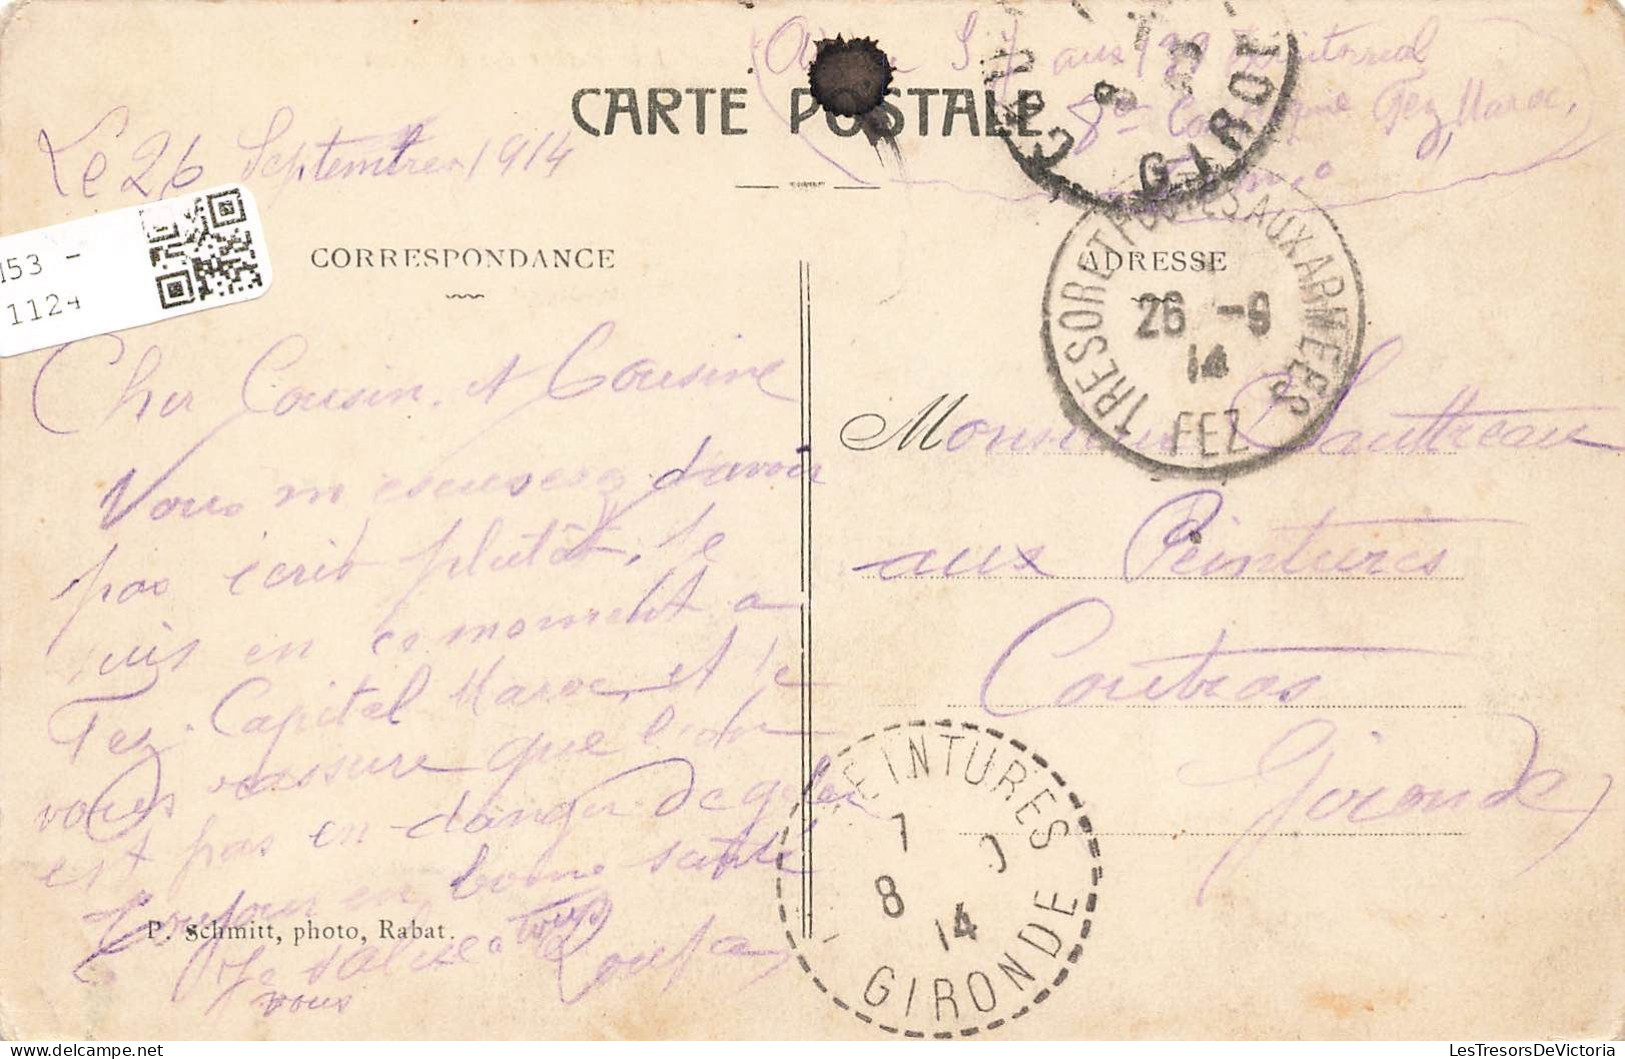 CARTE POSTALE
Le 26 Septembre 1914
aux
8 Fez Maroc
GIRO
153 -
1124
CORRESPONDANCE
ADRESSE
TRESOR ET POSTES AUX ARMEES
26 -9
14
FEZ
Cher Cousin et Cousine
Vous m'escuserez d'avoir
pas écrit plutôt, Je
suis en ce moment a
Fez. Capital Maroc, et Je
vous rassure que
est pas en danger
Toujour en bonne santé
Je salue tous
vous
P. Schmitt, photo, Rabat.
Monsieur
aux Peintures
Coutras
Gironde
PEINTURES
7
8
14
GIRONDE
LesTresorsDeVictoria